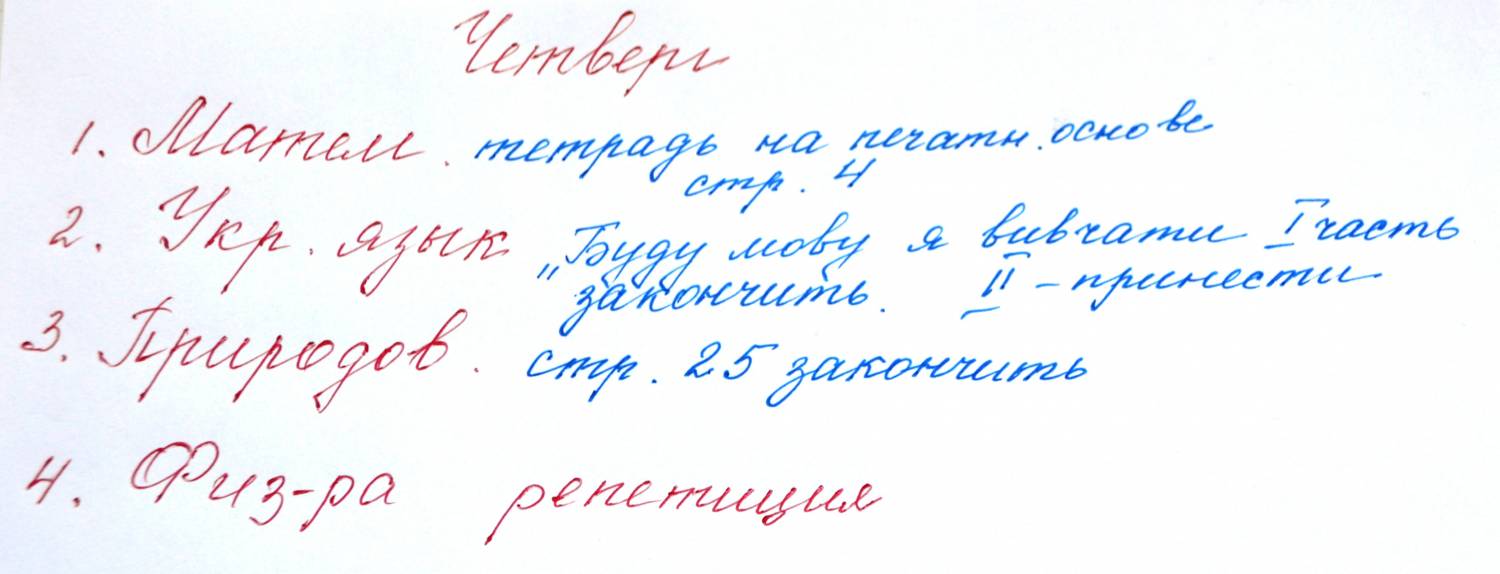 Четверг
1. Матем. тетрадь на печатн. основе
стр. 4
2. Укр. язык „Буду мову я вивчати I часть
закончить. II - принести
3. Природов. стр. 25 закончить
4. Физ-ра репетиция